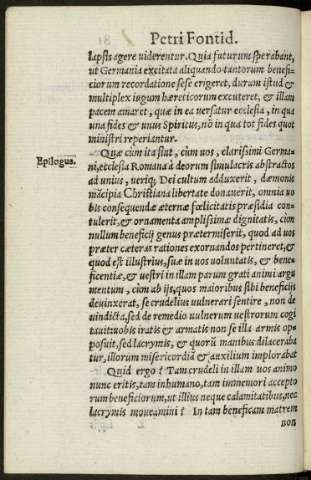 Petri Fontid.
lapsis agere uiderentur. Quia futurum sperabant,
ut Germania excitata aliquando tantorum benefi-
ciorum recordatione sese erigeret, durum istud &
multiplex iugum hæreticorum excuteret, & illam
pacem amaret, quæ in ea uersatur ecclesia, in qua
una fides & unus Spiritus, nõ in qua tot fides quot
ministri reperiantur.
Epilogus.
Quæ cùm ita sint, cùm uos, clarissimi Germa-
ni, ecclesia Romana à deorum simulacris abstractos
ad unius, ueriq; Dei cultum adduxerit, dæmonis
mãcipia Christiana libertate donauerit, omnia uo
bis consequendæ æternæ fœlicitatis præsidia con-
tulerit, & ornamenta amplissimæ dignitatis, cùm
nullum beneficij genus prætermiserit, quod ad uos
præter cæteras nationes exornandos pertineret, &
quod est illustrius, suæ in uos uoluntatis, & bene-
ficentiæ, & uestri in illam parum grati animi argu
mentum, cùm ab ijs, quos maioribus sibi beneficijs
deuinxerat, se crudelius uulnerari sentire, non de
uindicta, sed de remedio uulnerum uestrorum cogi
tauit: uobis iratis & armatis non se illa armis op-
posuit, sed lacrymis, & quorũ manibus dilaceraba
tur, illorum misericordiã & auxilium implorabat
Quid ergo? Tam crudeli in illam uos animo
nunc eritis, tam inhumano, tam immemori accepto
rum beneficiorum, ut illius neque calamitatibus, nec
lacrymis moueamini? In tam beneficam matrem
non